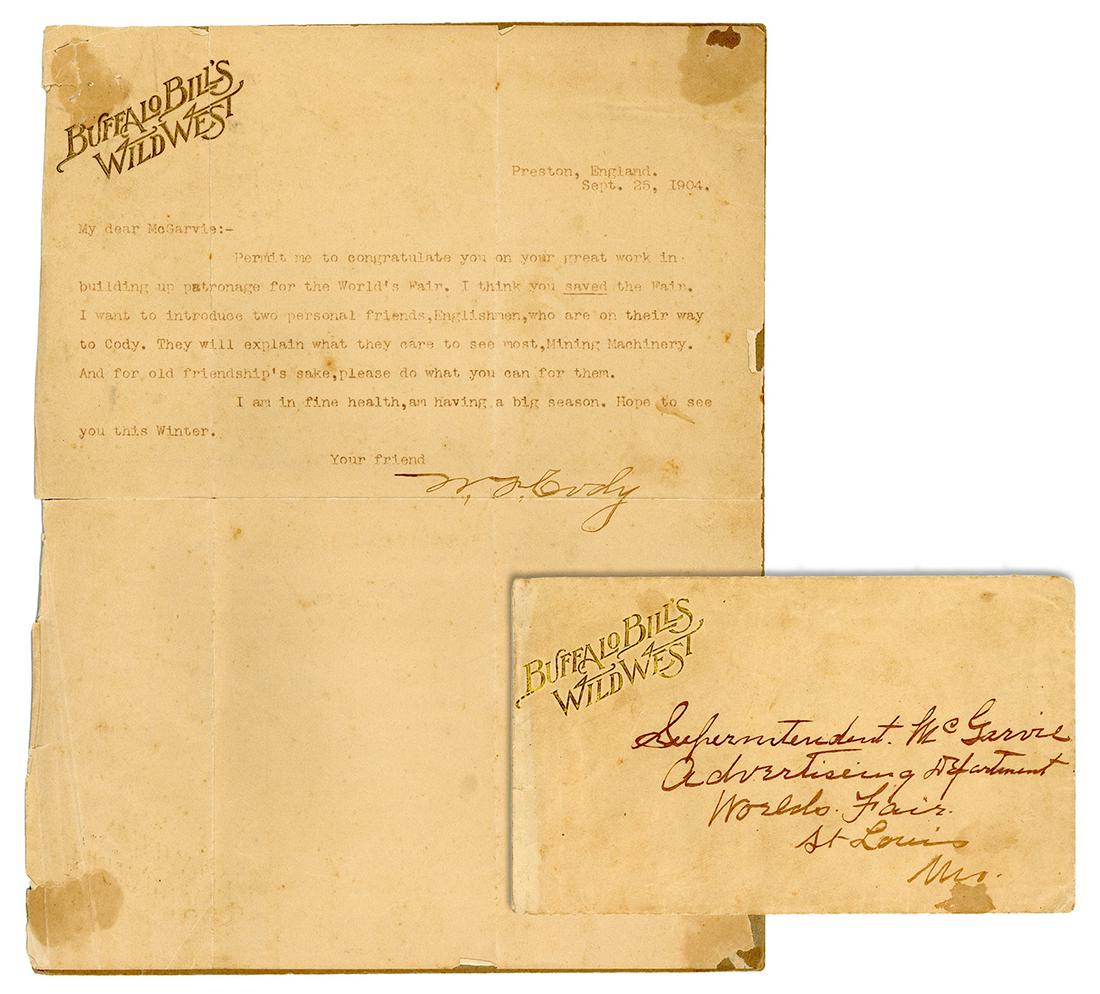 BUFFALO BILL'S
WILD WEST
Preston, England.
Sept. 25, 1904.
My dear McGarvie:-
Permit me to congratulate you on your great work in
building up patronage for the World's Fair. I think you saved the Fair.
I want to introduce two personal friends,Englishmen,who are on their way
to Cody. They will explain what they care to see most,Mining Machinery.
And for old friendship's sake,please do what you can for them.
I am in fine health,am having a big season. Hope to see
you this Winter.
Your friend
W. F. Cody
BUFFALO BILL'S
WILD WEST
Superintendent. McGarvie
Advertiseing Department
Worlds. Fair.
St Louis
Mo.